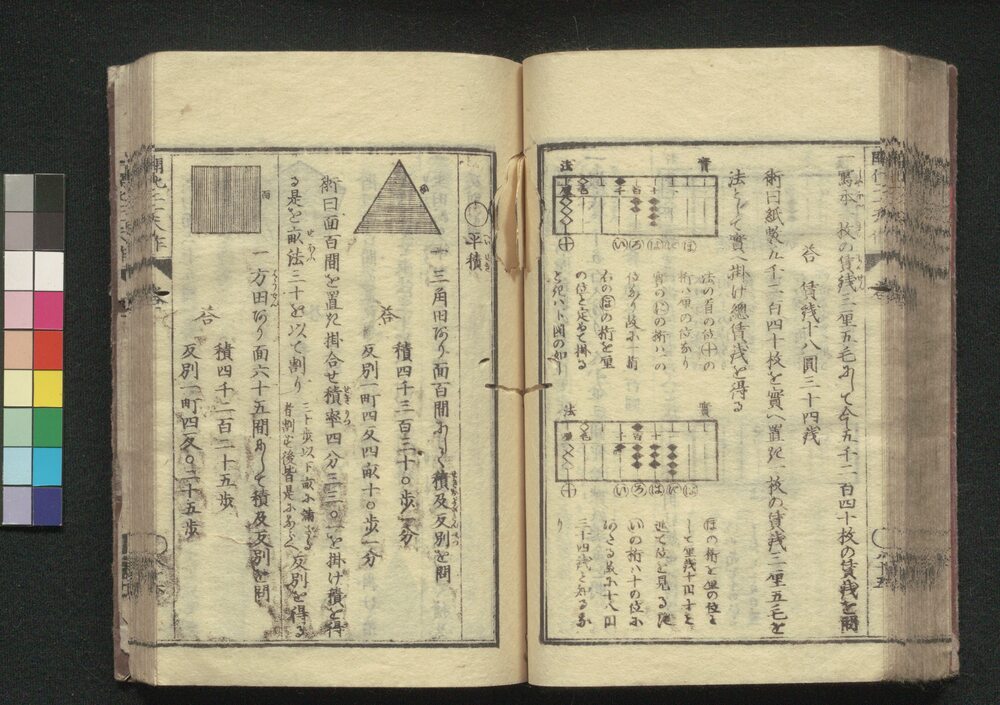 一 寫本一枚の賃銭三厘五毛にして今五千二百四十枚の賃銭を問
答 賃銭十八圓三十四銭
術曰紙数五千二百四十枚を實へ置き一枚の賃銭三厘五毛を
法として實へ掛け總賃銭を得る
實
法
法の首の位㊉の
桁は厘の位なり
實の㋑の桁は八の
位あり故に一桁
右の㋭の桁を厘
の位と定めて掛る
ときは下図の如し
實
法
㋭の桁を厘の位と
して厘銭十円と
進て位を見る时
㋑の桁は十の位に
あたる故に十八円
三十四銭と知るな
り
平積
一 三角田あり面百間にして積及反別を問
答 積四千三百三十〇歩一分
反別一町四反四畝十〇歩一分
術曰面百間を置き掛合せ積率四分三三〇一を掛け積を得
る是を畝法三十を以て割り
三十歩以下畝に満ざる
者割ず後皆是にならへ
反別を得る
面
一 方田あり面六十五間にして積及反別を問
答 積四千二百二十五歩
反別一町四反〇二十五歩
面